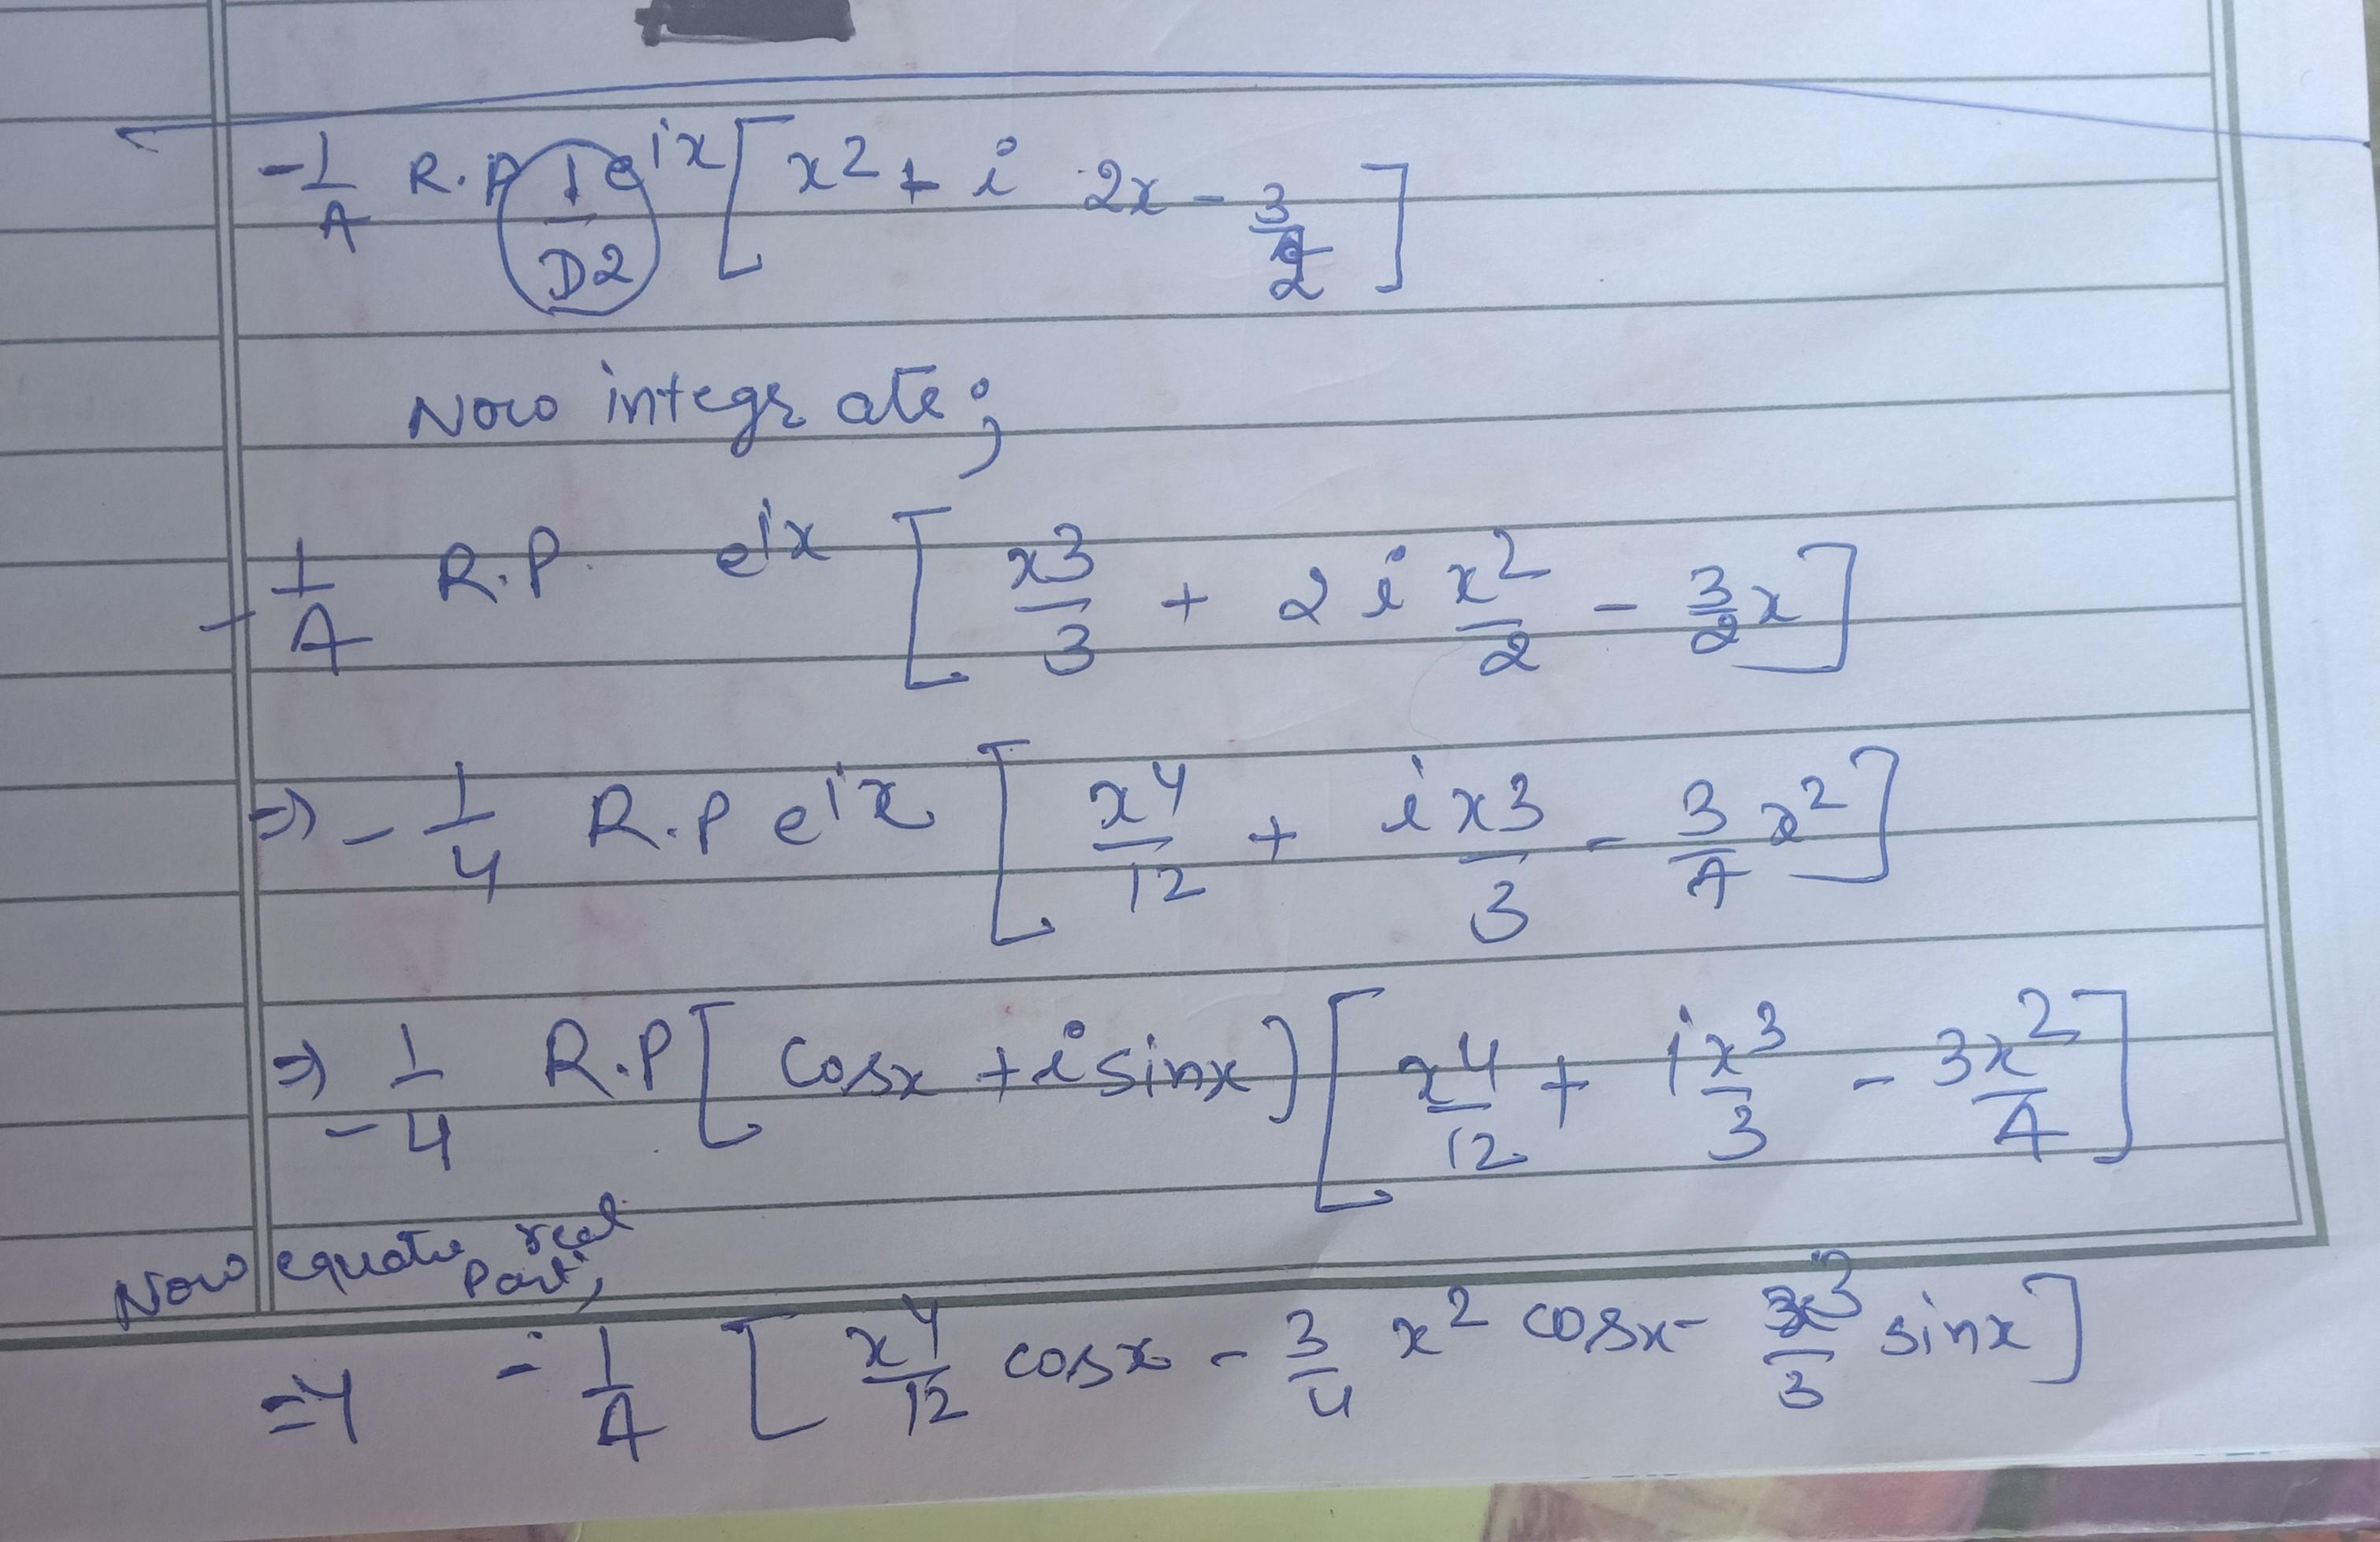 -1/4 R.P 1/D2 e^ix [x2 + i 2x - 3/2]
Now integrate;
-1/4 R.P. e^ix [x3/3 + 2i x2/2 - 3/2 x]
=> -1/4 R.P e^ix [x4/12 + i x3/3 - 3/4 x2]
=> -1/4 R.P [cosx + i sinx] [x4/12 + i x3/3 - 3x2/4]
Now equate real part,
=> -1/4 [x4/12 cosx - 3/4 x2 cosx - x3/3 sinx]